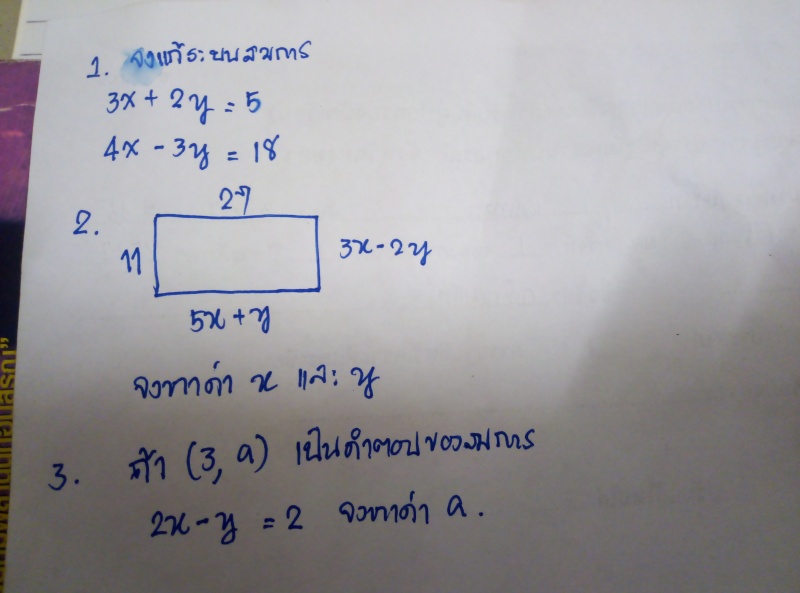 1. จงแก้ระบบสมการ
3x + 2y = 5
4x - 3y = 18
2.
11
3x - 2y
5x + y
จงหาค่า x และ y
3. ถ้า (3, a) เป็นคำตอบของสมการ
2x - y = 2 จงหาค่า a.